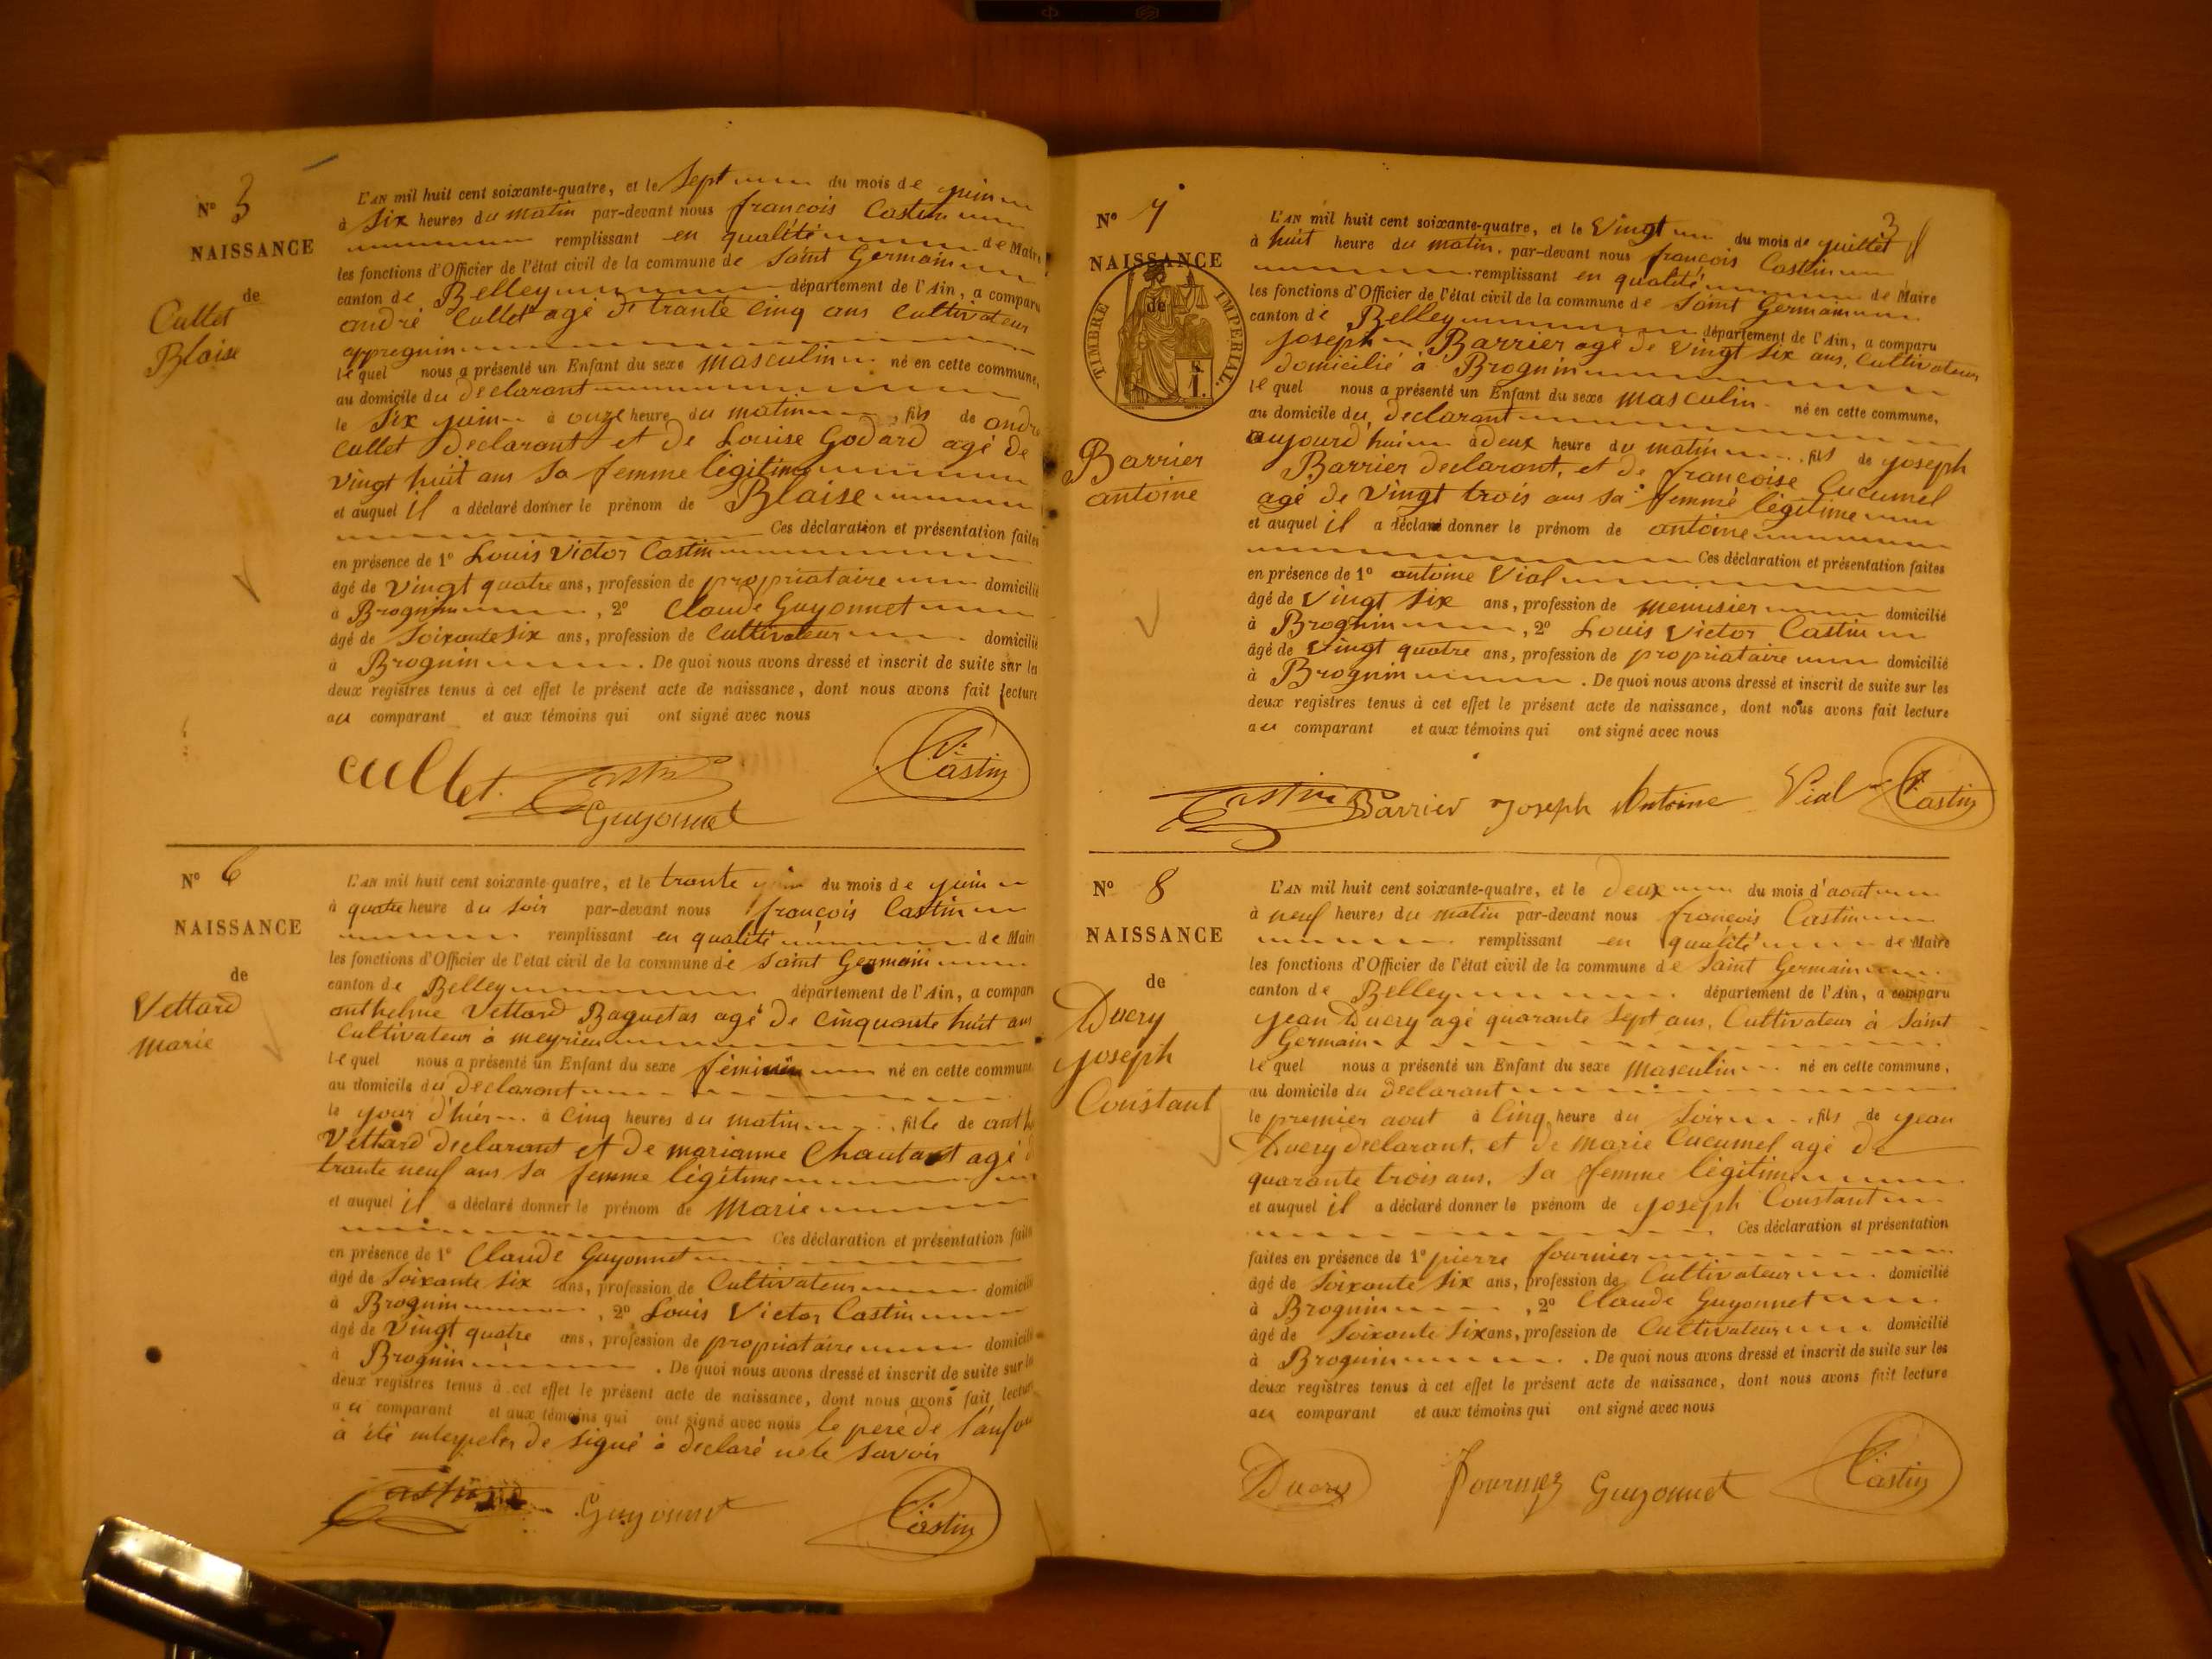 N° 5
NAISSANCE
de
Cullet
Blaise
L'AN mil huit cent soixante-quatre, et le Sept du mois de juin
à six heures du matin par-devant nous françois Castin
remplissant en qualité de Maire
les fonctions d'Officier de l'état civil de la commune de saint Germain
canton de Belley département de l'Ain, a comparu
andré Cullet agé de trante cinq ans Cultivateur
appregnin
lequel nous a présenté un Enfant du sexe masculin né en cette commune,
au domicile du declarant
le six juin à onze heure du matin, fils de andré
Cullet declarant et de Louise Godard agé de
vingt huit ans sa femme légitime
et auquel il a déclaré donner le prénom de Blaise
Ces déclaration et présentation faites
en présence de 1° Louis Victor Castin
âgé de vingt quatre ans, profession de propriataire domicilié
à Brognin, 2° Claude Guyonnet
âgé de soixante six ans, profession de Cultivateur domicilié
à Brognin. De quoi nous avons dressé et inscrit de suite sur les
deux registres tenus à cet effet le présent acte de naissance, dont nous avons fait lecture
au comparant et aux témoins qui ont signé avec nous
Cullet Castin Guyonnet Castin
N° 6
NAISSANCE
de
Vettard
marie
L'AN mil huit cent soixante-quatre, et le trante du mois de juin
à quatre heure du soir par-devant nous françois Castin
remplissant en qualité de Maire
les fonctions d'Officier de l'état civil de la commune de saint Germain
canton de Belley département de l'Ain, a comparu
anthelme Vettard Baguetas agé de cinquante huit ans
Cultivateur à meyrieu
lequel nous a présenté un Enfant du sexe féminin né en cette commune
au domicile du declarant
le jour d'hier à cinq heures du matin, fille de anth
Vettard declarant et de marianne Chautant agé d
trante neuf ans sa femme légitime
et auquel il a déclaré donner le prénom de Marie
Ces déclaration et présentation faites
en présence de 1° Claude Guyonnet
âgé de soixante six ans, profession de Cultivateur domicilié
à Brognin, 2° Louis Victor Castin
âgé de vingt quatre ans, profession de propriataire domicilié
à Brognin. De quoi nous avons dressé et inscrit de suite sur les
deux registres tenus à cet effet le présent acte de naissance, dont nous avons fait lecture
au comparant et aux témoins qui ont signé avec nous le pere de l'anfan
à été interpeler de signé à declaré ne le savoir
Castin Guyonnet Castin
3
N° 7
NAISSANCE
de
TIMBRE IMPERIAL
Barrier
antoine
L'AN mil huit cent soixante-quatre, et le Vingt du mois de juillet
à huit heure du matin. par-devant nous françois Castin
remplissant en qualité de Maire
les fonctions d'Officier de l'état civil de la commune de Saint Germain
canton de Belley département de l'Ain, a comparu
joseph Barrier agé de vingt six ans, Cultivateur
domicilié à Brognin
lequel nous a présenté un Enfant du sexe masculin né en cette commune,
au domicile du declarant
aujourd'hui à deux heure du matin, fils de joseph
Barrier declarant, et de françoise Cucumel
agé de vingt trois ans sa femme légitime
et auquel il a déclaré donner le prénom de antoine
Ces déclaration et présentation faites
en présence de 1° antoine Vial
âgé de vingt six ans, profession de menuisier domicilié
à Brognin, 2° Louis Victor Castin
âgé de vingt quatre ans, profession de propriataire domicilié
à Brognin. De quoi nous avons dressé et inscrit de suite sur les
deux registres tenus à cet effet le présent acte de naissance, dont nous avons fait lecture
au comparant et aux témoins qui ont signé avec nous
Castin Barrier Joseph Antoine Vial Castin
N° 8
NAISSANCE
de
Ducry
joseph
Constant
L'AN mil huit cent soixante-quatre, et le deux du mois d'aout
à neuf heures du matin par-devant nous françois Castin
remplissant en qualité de Maire
les fonctions d'Officier de l'état civil de la commune de Saint Germain
canton de Belley département de l'Ain, a comparu
jean Ducry agé quarante sept ans, Cultivateur à Saint
Germain
lequel nous a présenté un Enfant du sexe masculin né en cette commune,
au domicile du declarant
le premier aout à Cinq heure du soir, fils de jean
Ducry declarant, et de marie Cucumel agé de
quarante trois ans, sa femme légitime
et auquel il a déclaré donner le prénom de joseph Constant
Ces déclaration et présentation
faites en présence de 1° pierre fournier
âgé de soixante six ans, profession de Cultivateur domicilié
à Brognin, 2° Claude Guyonnet
âgé de soixante six ans, profession de Cultivateur domicilié
à Brognin. De quoi nous avons dressé et inscrit de suite sur les
deux registres tenus à cet effet le présent acte de naissance, dont nous avons fait lecture
au comparant et aux témoins qui ont signé avec nous
Ducry Fournier Guyonnet Castin